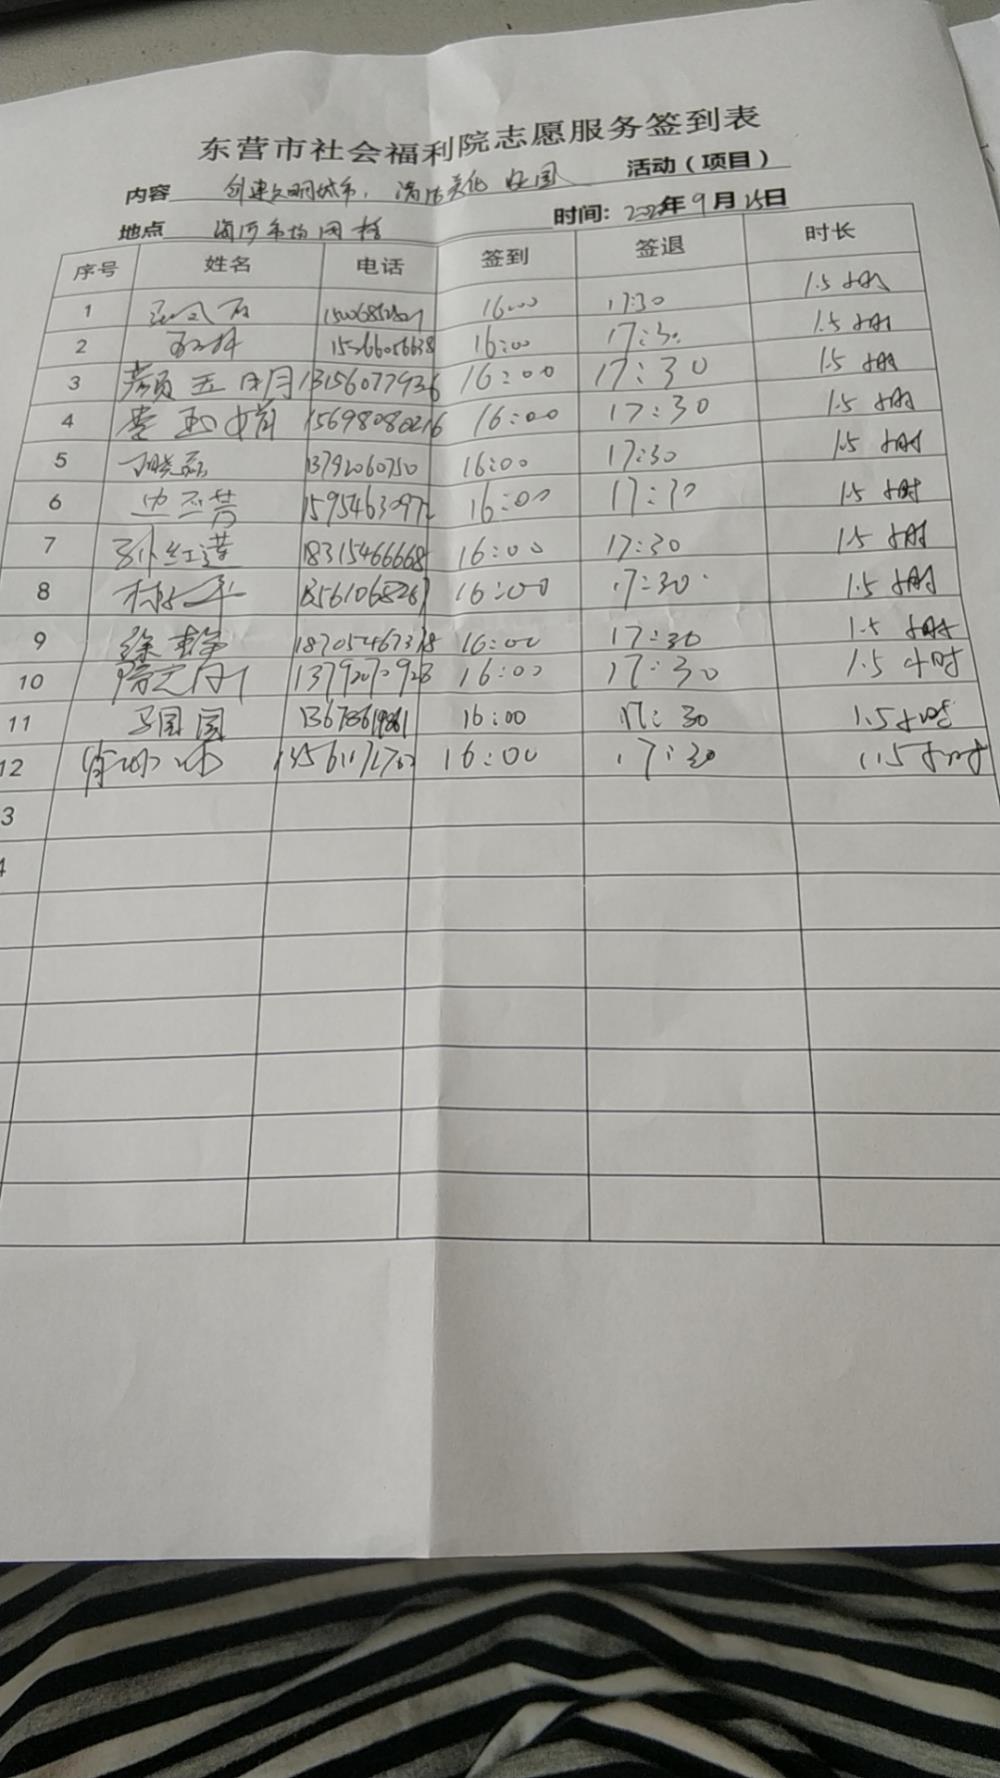 东营市社会福利院志愿服务签到表
内容 创建文明城市，清洁美化家园 活动（项目）
地点 海河市场网格 时间：2022年9月25日
序号 姓名 电话 签到 签退 时长
1 16:00 17:30 1.5小时
2 15266056638 16:00 17:30 1.5小时
3 颜五月 13156077936 16:00 17:30 1.5小时
4 李亚娟 15698080216 16:00 17:30 1.5小时
5 丁晓磊 13792060750 16:00 17:30 1.5小时
6 边丕芳 1595463097 16:00 17:30 1.5小时
7 孙红莲 18315466668 16:00 17:30 1.5小时
8 1356106826 16:00 17:30 1.5小时
9 徐静 18705467378 16:00 17:30 1.5小时
10 16:00 17:30 1.5小时
11 马园园 13678619861 16:00 17:30 1.5小时
12 16:00 17:30 1.5小时
3
4